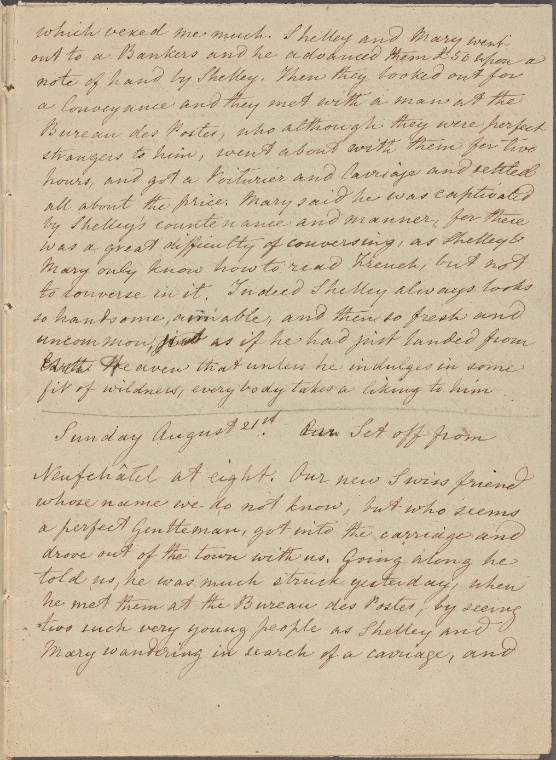 which vexed me much. Shelley and Mary went
out to a Bankers and he advanced them £50 upon a
note of hand by Shelley. Then they looked out for
a Conveyance and they met with a man at the
Bureau des Postes, who although they were perfect
strangers to him, went about with them for two
hours, and got a Voiturier and Carriage and settled
all about the price. Mary said he was captivated
by Shelley's countenance and manner, for there
was a great difficulty of conversing, as Shelley &
Mary only know how to read French, but not
to converse in it. Indeed Shelley always looks
so handsome, amiable, and then so fresh and
uncommon, just as if he had just landed from
Earth Heaven that unless he indulges in some
fit of wildness, everybody takes a liking to him
Sunday August 21st. Our Set off from
Neufchâtel at eight. Our new Swiss friend
whose name we do not know, but who seems
a perfect Gentleman, got into the carriage and
drove out of the town with us. Going along he
told us, he was much struck yesterday, when
he met them at the Bureau des Postes, by seeing
two such very young people as Shelley and
Mary wandering in search of a carriage, and